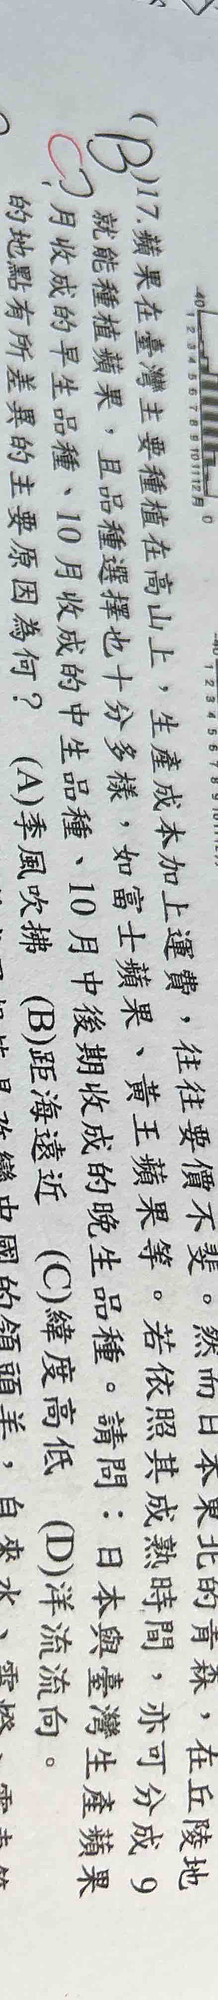 -40
1 2 3 4 5 6 7 8 9 10 11 12月
0
-40
1 2 3 4 5 6 7 8 9
(B)17.蘋果在臺灣主要種植在高山上，生產成本加上運費，往往要價不斐。然而日本東北的青森，在丘陵地
就能種植蘋果，且品種選擇也十分多樣，如富士蘋果、黃王蘋果等。若依照其成熟時間，亦可分成 9
C 月收成的早生品種、10 月收成的中生品種、10 月中後期收成的晚生品種。請問：日本與臺灣生產蘋果
的地點有所差異的主要原因為何？ (A)季風吹拂 (B)距海遠近 (C)緯度高低 (D)洋流流向。
變中國的領頭羊，自來水、電燈、